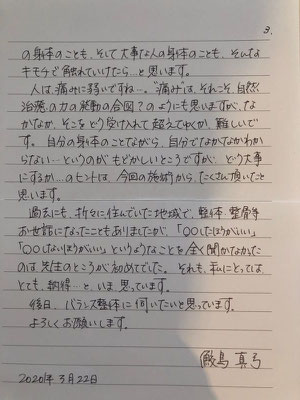 3.
の身体のことも、そして大事な人の身体のことも、そんな
キモチで触れていけたら…と思います。
人は、痛みに弱いですね…。"痛み"は、それこそ、自然
治癒の力の発動の合図？のようにも思いますが、な
かなか、そこをどう受け入れて超えてゆくか、難しいで
す。自分の身体のことながら、自分でなかなかわか
らない…というのが、もどかしいところですが、どう大事
にするか…のヒントは、今回の施術から、たくさん頂いたと
思います。
過去にも、折々に住んでいた地域で、整体、整骨等
お世話になったこともありましたが、「〇〇したほうがいい」
「〇〇しないほうがいい」というようなことを全く聞かなかった
のは先生のところが初めてでした。それも、私にとっては、
とても、納得…と、いま思っています。
後日、バランス整体に伺いたいと思っています。
よろしくお願いします。
鮫島 真弓
2020年3月22日